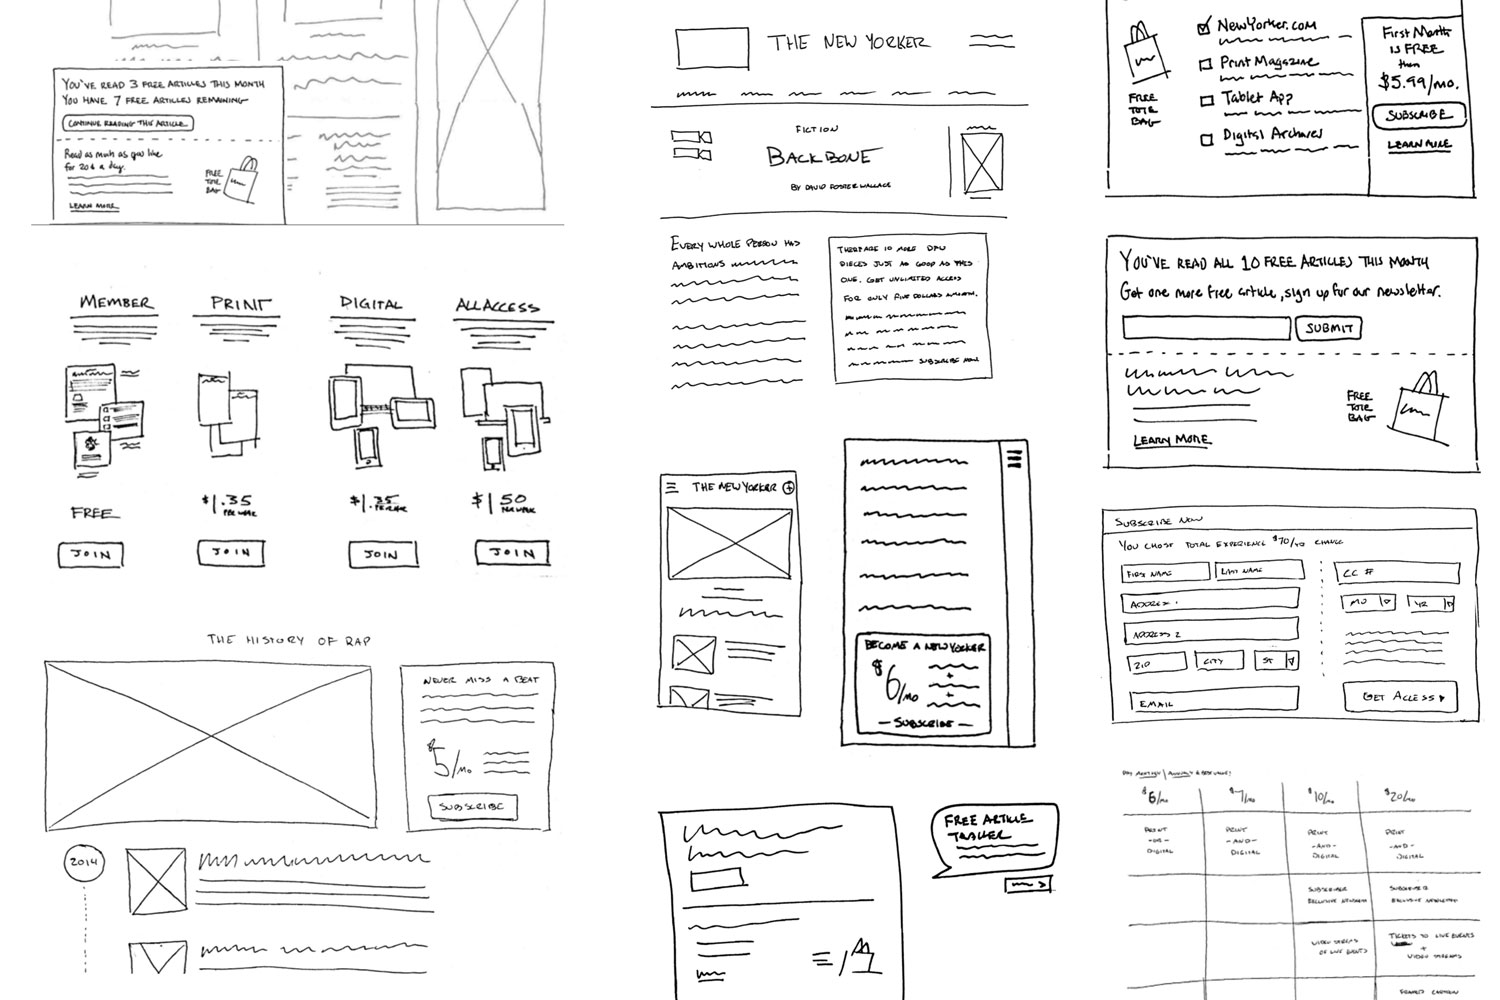 YOU'VE READ 3 FREE ARTICLES THIS MONTH
YOU HAVE 7 FREE ARTICLES REMAINING
CONTINUE READING THIS ARTICLE
Read as much as you like
for 20¢ a day.
FREE
TOTE
BAG
LEARN MORE
MEMBER
PRINT
DIGITAL
ALL ACCESS
FREE
$1.35
PER WEEK
$1.35
PER WEEK
$1.50
PER WEEK
JOIN
JOIN
JOIN
JOIN
THE HISTORY OF RAP
NEVER MISS A BEAT
$5/MO
SUBSCRIBE
2014
THE NEW YORKER
FICTION
BACKBONE
BY DAVID FOSTER WALLACE
EVERY WHOLE PERSON HAS
AMBITIONS
THERE ARE 10 MORE DFW
PIECES JUST AS GOOD AS THIS
ONE. GET UNLIMITED ACCESS
FOR ONLY FIVE DOLLARS A MONTH.
SUBSCRIBE NOW
THE NEW YORKER
BECOME A NEW YORKER
$6/MO
+
+
— SUBSCRIBE —
FREE ARTICLE
TRACKER
FREE
TOTE
BAG
NewYorker.com
Print Magazine
Tablet App
Digital Archives
First Month
is FREE
then
$5.99/mo.
SUBSCRIBE
LEARN MORE
YOU'VE READ ALL 10 FREE ARTICLES THIS MONTH
Get one more free article, sign up for our newsletter.
SUBMIT
FREE
TOTE
BAG
LEARN MORE
SUBSCRIBE NOW
YOU CHOSE TOTAL EXPERIENCE $70/YR CHANGE
FIRST NAME
LAST NAME
CC #
ADDRESS 1
MO
YR
ADDRESS 2
ZIP
CITY
ST
EMAIL
GET ACCESS
PAY MONTHLY | ANNUALLY & BEST VALUE!
$6/MO
$7/MO
$10/MO
$20/MO
PRINT
-OR-
DIGITAL
PRINT
-AND-
DIGITAL
PRINT
-AND-
DIGITAL
PRINT
-AND-
DIGITAL
SUBSCRIBER
EXCLUSIVE NEWSLETTER
SUBSCRIBER
EXCLUSIVE NEWSLETTER
VIDEO STREAMS
OF LIVE EVENTS
TICKETS TO LIVE EVENTS
+
VIDEO STREAMS
FRAMED CARTOON